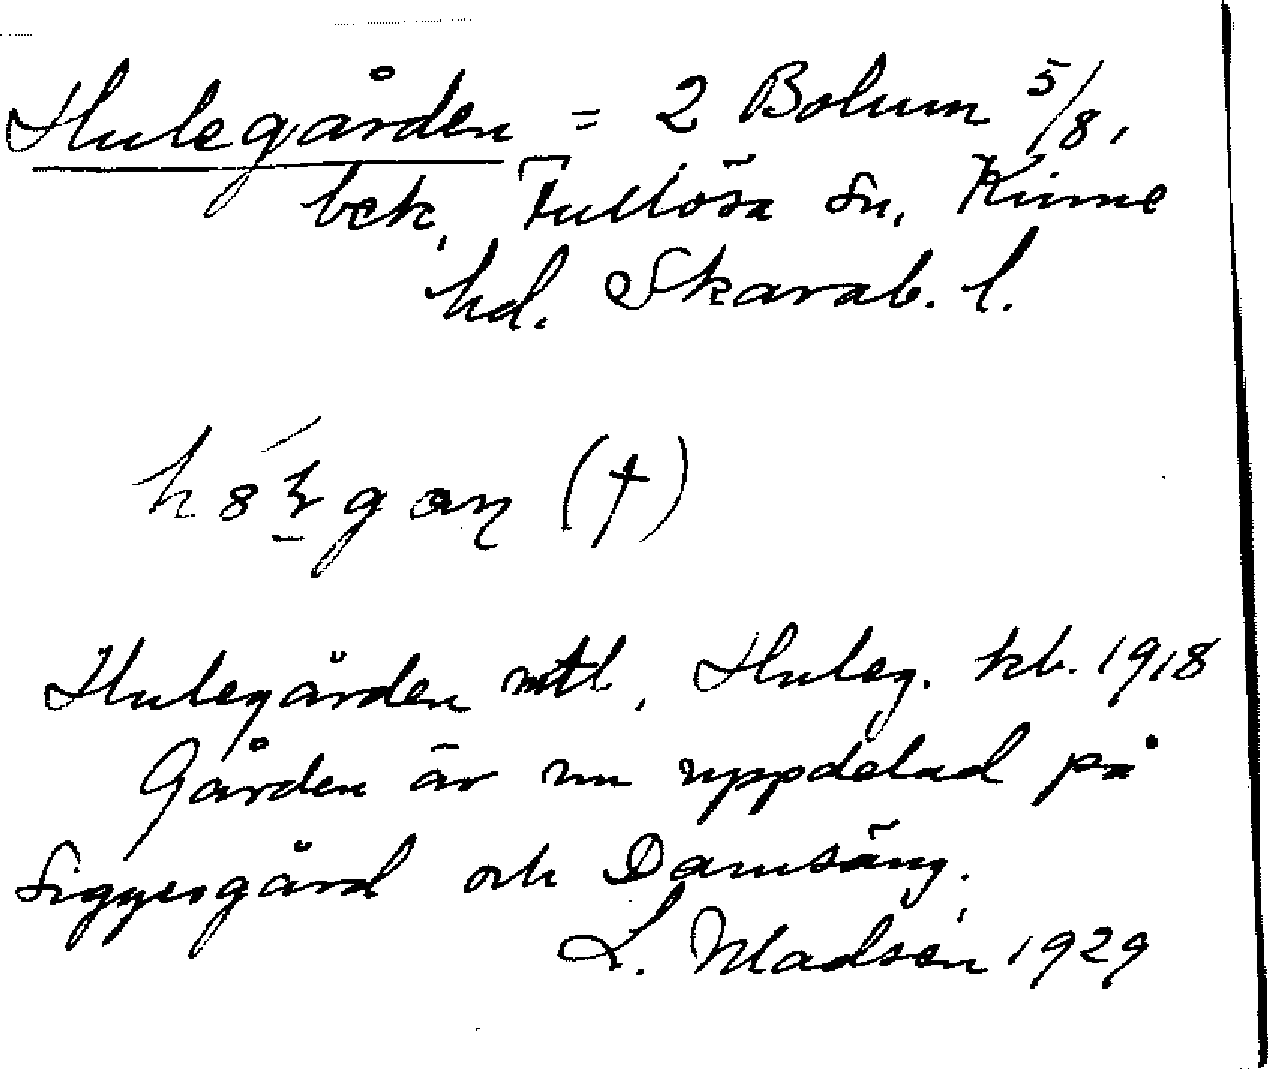 Hulegården = 2 Bolum 5/8,
bek, Fullösa sn, Kinne
hd. Skarab. l.
(†)
Hulegården mtl, Huleg. kb. 1918
Gården är nu uppdelad på
Siggesgård och Damsäng.
L. Madsén 1929